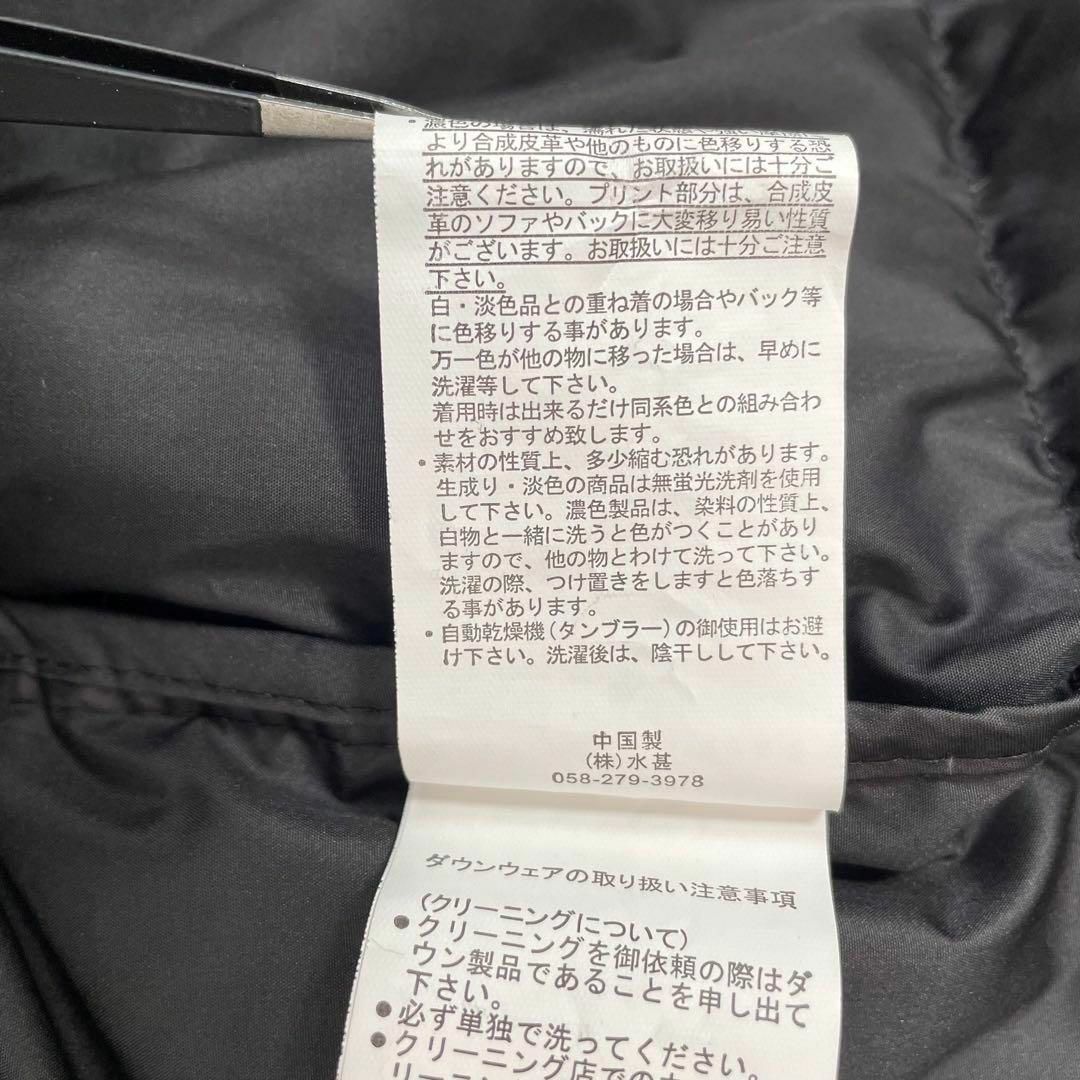 ・濃色の場合は、
より合成皮革や他のものに色移りする恐
れがありますので、お取扱いには十分ご
注意ください。プリント部分は、合成皮
革のソファやバックに大変移り易い性質
がございます。お取扱いには十分ご注意
下さい。
白・淡色品との重ね着の場合やバック等
に色移りする事があります。
万一色が他の物に移った場合は、早めに
洗濯等して下さい。
着用時は出来るだけ同系色との組み合わ
せをおすすめ致します。
・素材の性質上、多少縮む恐れがあります。
生成り・淡色の商品は無蛍光洗剤を使用
して下さい。濃色製品は、染料の性質上、
白物と一緒に洗うと色がつくことがあり
ますので、他の物とわけて洗って下さい。
洗濯の際、つけ置きをしますと色落ちす
る事があります。
・自動乾燥機(タンブラー)の御使用はお避
け下さい。洗濯後は、陰干しして下さい。
中国製
(株)水甚
058-279-3978
ダウンウェアの取り扱い注意事項
(クリーニングについて)
●クリーニングを御依頼の際はダ
ウン製品であることを申し出て
下さい。
●必ず単独で洗ってください。
●クリーニング店での
リーニン